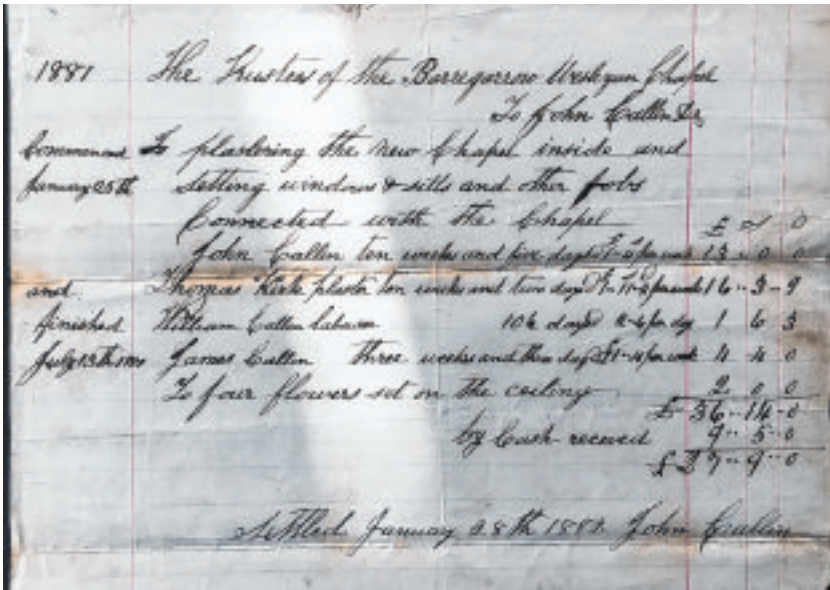 1881 The Trustees of the Barregarrow Wesleyan Chapel
To John Callin Dr
Commenced To plastering the new Chapel inside and
January 25th setting windows & sills and other jobs
Connected with the Chapel £
John Callin ten weeks and five days per week 13 - 0 0
and Thomas Kirk plaster ten weeks and two days per week 16 - 3 - 9
finished William Callin labourer 10½ days 2-6 per day 1 6 3
July 13th James Callin three weeks and three days per week 4 4 0
To four flowers set on the ceiling 2 0 0
£ 36 - 14 - 0
by Cash received 9 - 5 - 0
£ 27 - 9 - 0
Settled January 28th 1882 John Callin